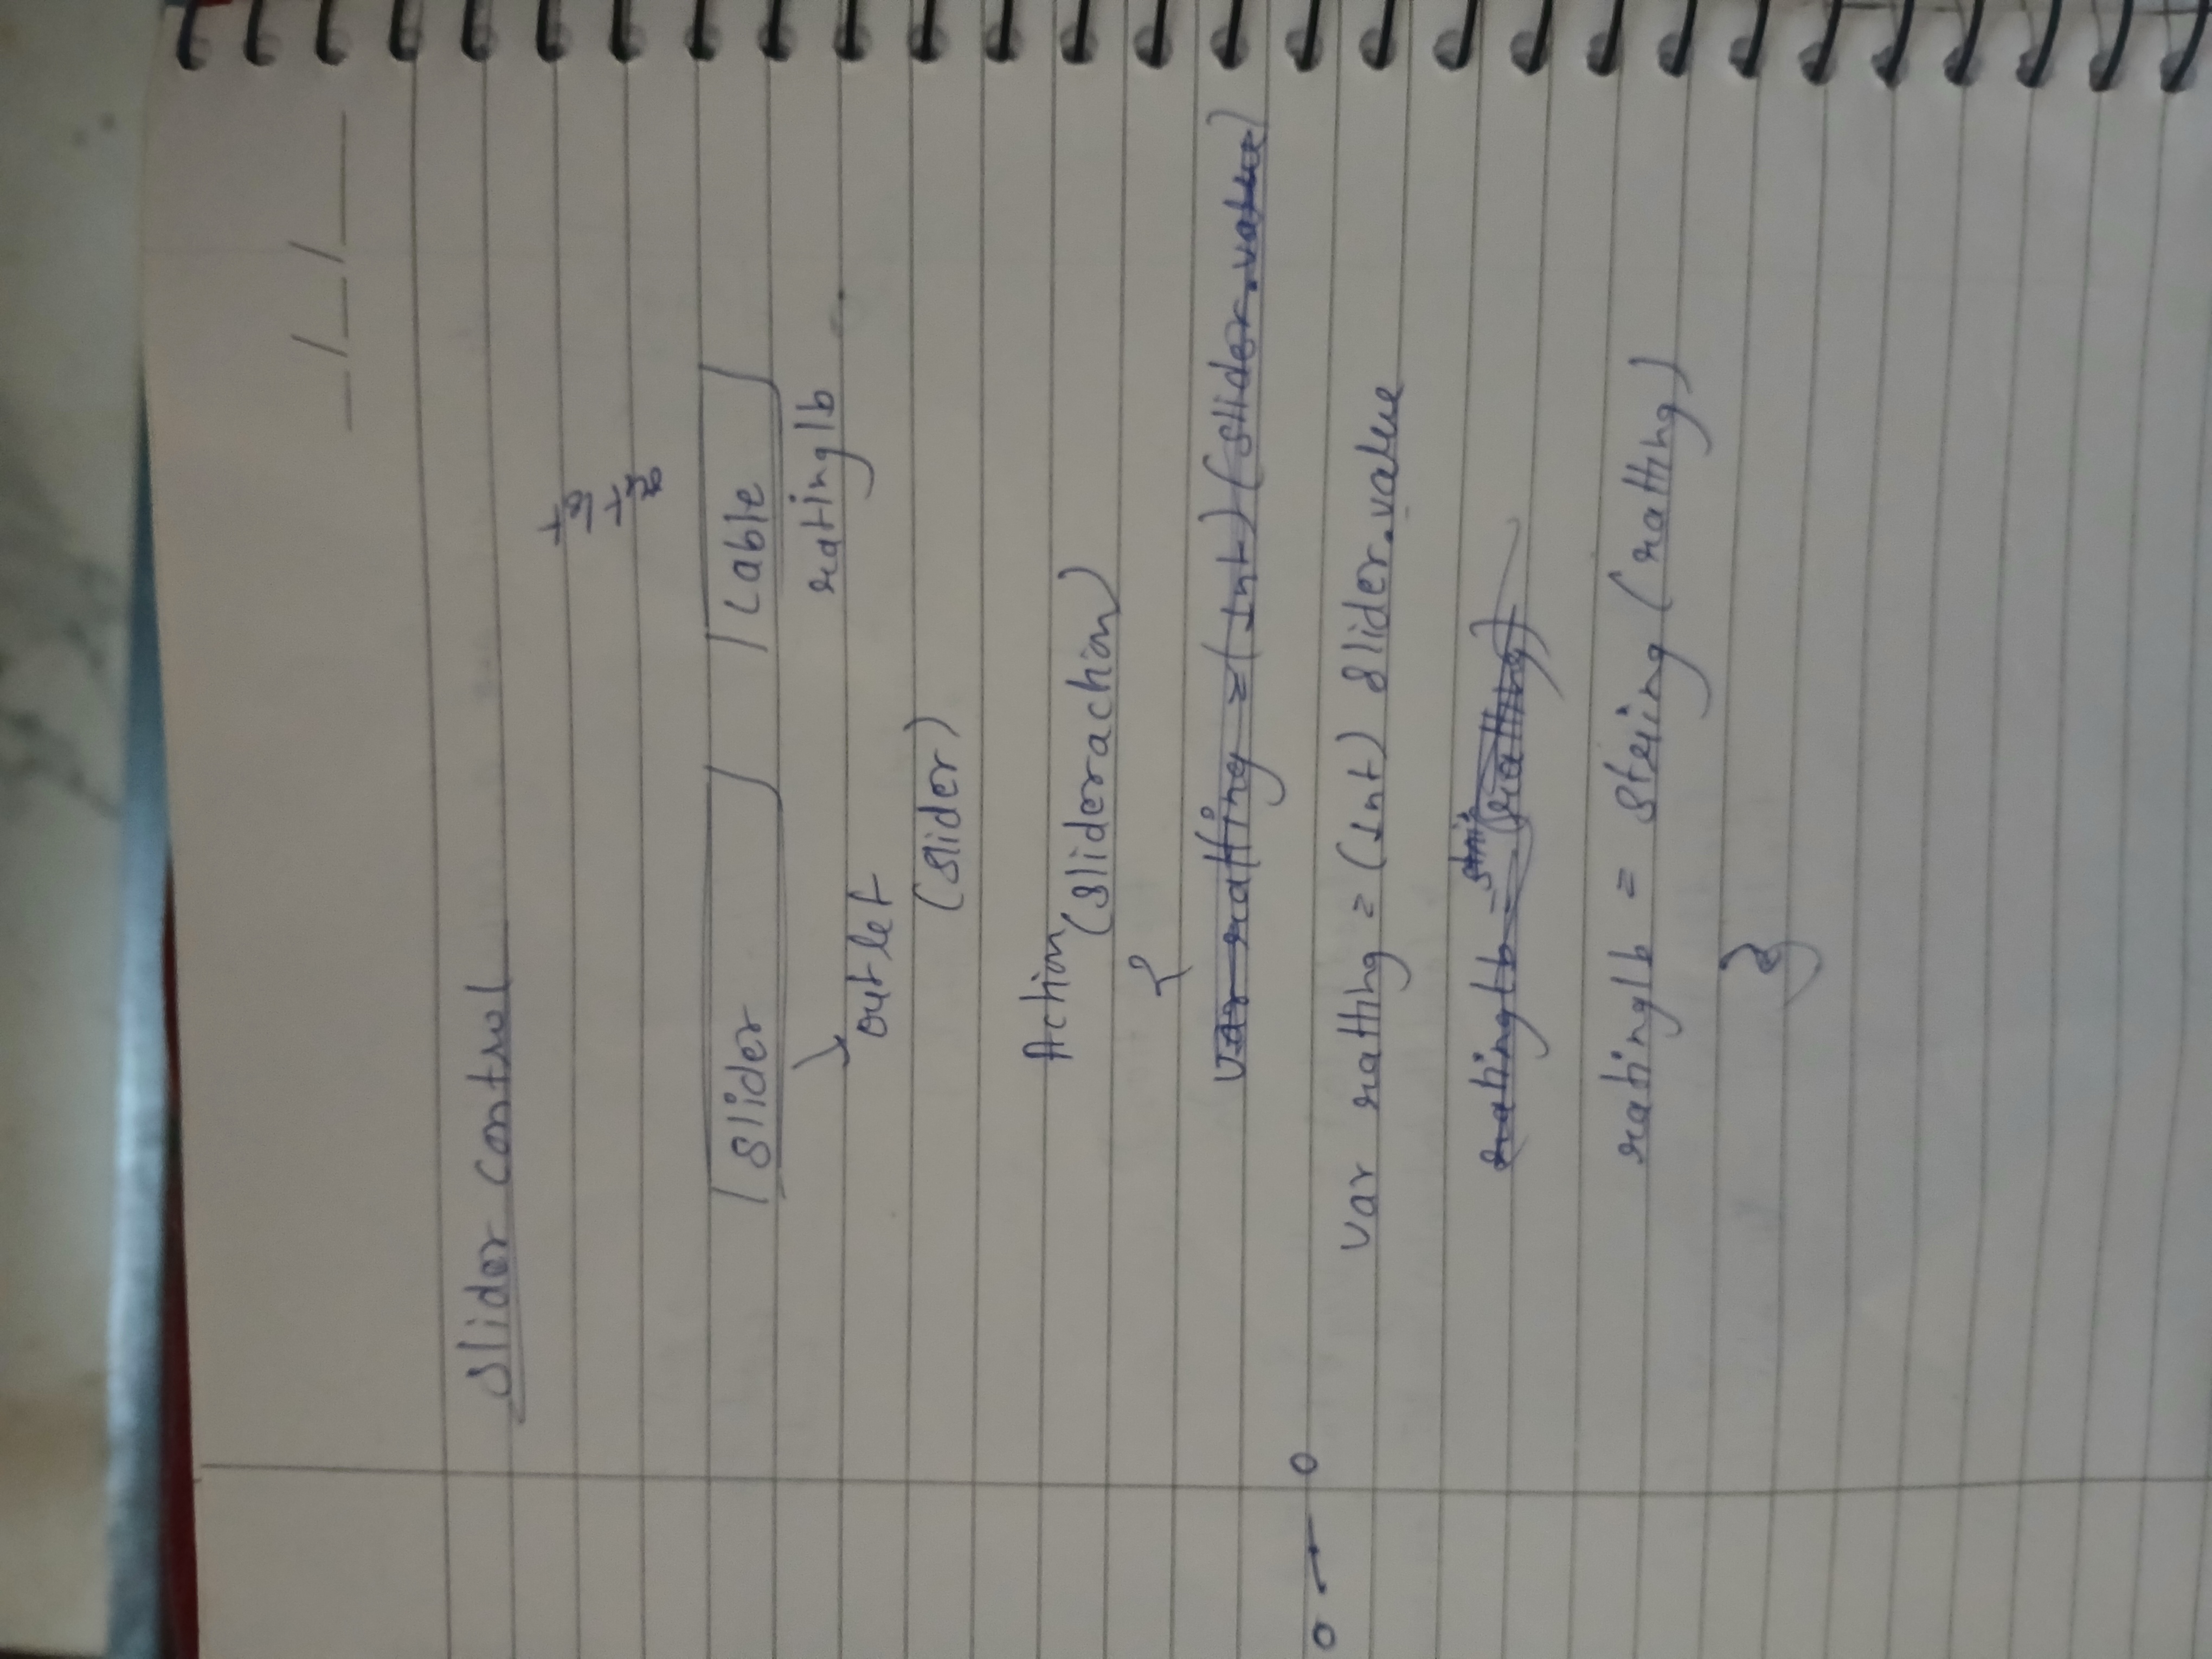 __/__/____
Slider control
outlet
Slider Lable
ratinglb
outlet
(slider)
Action
(slideraction)
{
var ratting = (Int) (slider.value)
var ratting = (Int) slider.value
ratinglb = (ratting)
ratinglb = string (ratting)
}